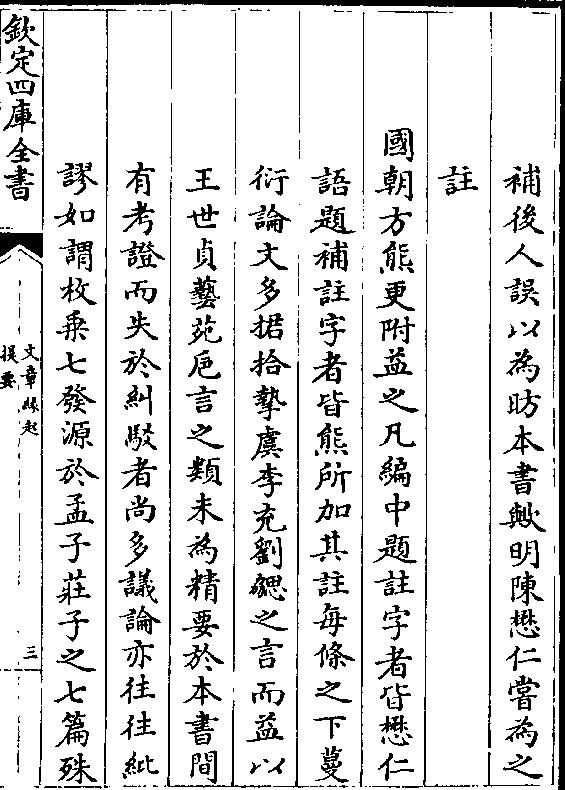 補後人誤以為昉本書歟明陳懋仁嘗為之
註
國朝方熊更附益之凡編中題註字者皆懋仁
語題補註字者皆熊所加其註每條之下蔓
衍論文多捃拾摯虞李充劉勰之言而益以
王世貞藝苑巵言之類未為精要於本書間
有考證而失於糾駁者尚多議論亦往往紕
謬如謂枚乗七發源於孟子莊子之七篇殊
欽定四庫全書
文章縁起
提要
三